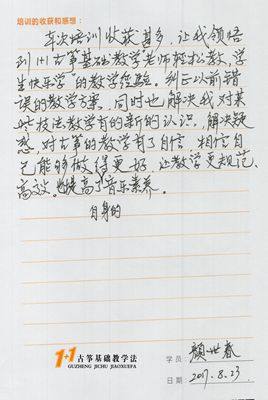 培训的收获和感想：
本次培训收获甚多，让我领悟
到1+1古筝基础教学老师轻松教，学
生快乐学"的教学经验。纠正以前错
误的教学方案，同时也解决我对某
些技法教学有的新的认识，解决疑
惑，对古筝的教学有了自信，相信自
己能够做得更好，让教学更规范、
高效。也提高了音乐素养。
自身的
1+1古筝基础教学法
GUZHENG JICHU JIAOXUEFA
学员：颜世春
日期：2017.8.23.